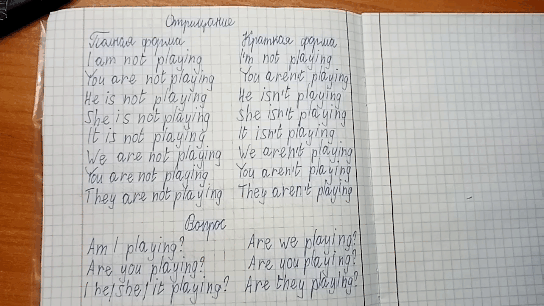 Отрицание
Полная форма Краткая форма
I am not playing I'm not playing
You are not playing You aren't playing
He is not playing He isn't playing
She is not playing She isn't playing
It is not playing It isn't playing
We are not playing We aren't playing
You are not playing You aren't playing
They are not playing They aren't playing
Вопрос
Am I playing? Are we playing?
Are you playing? Are you playing?
I he/she/it playing? Are they playing?